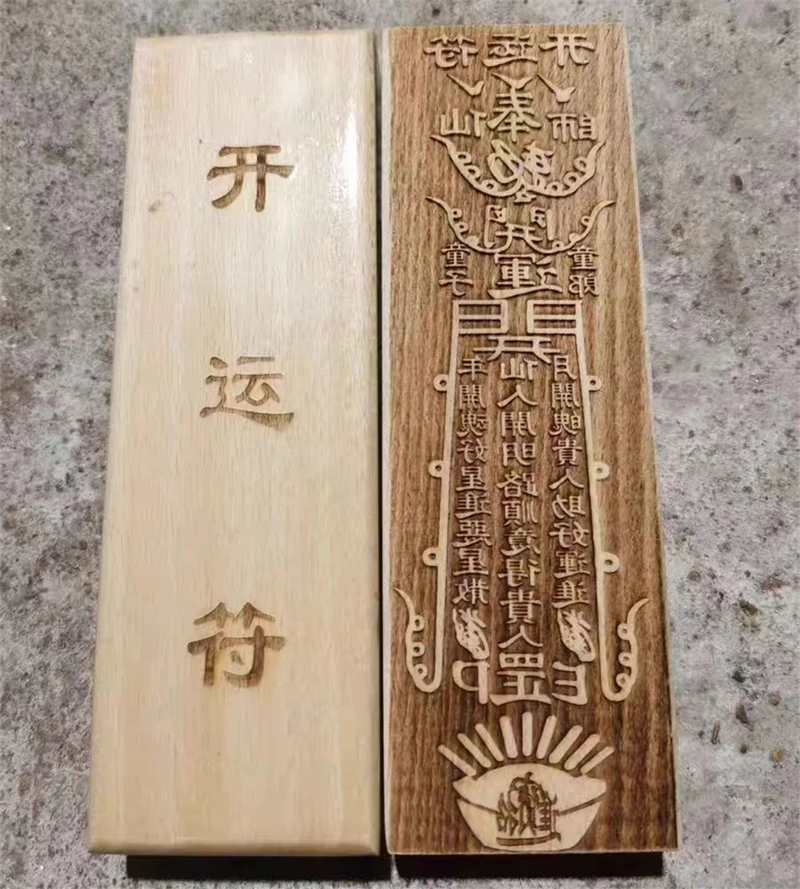 开运符
开运符
奉
師仙
開運
童子
童郎
開
年開魂好星進惡星散
仙人開明路順意得貴人罡
月開魄貴人助好運進